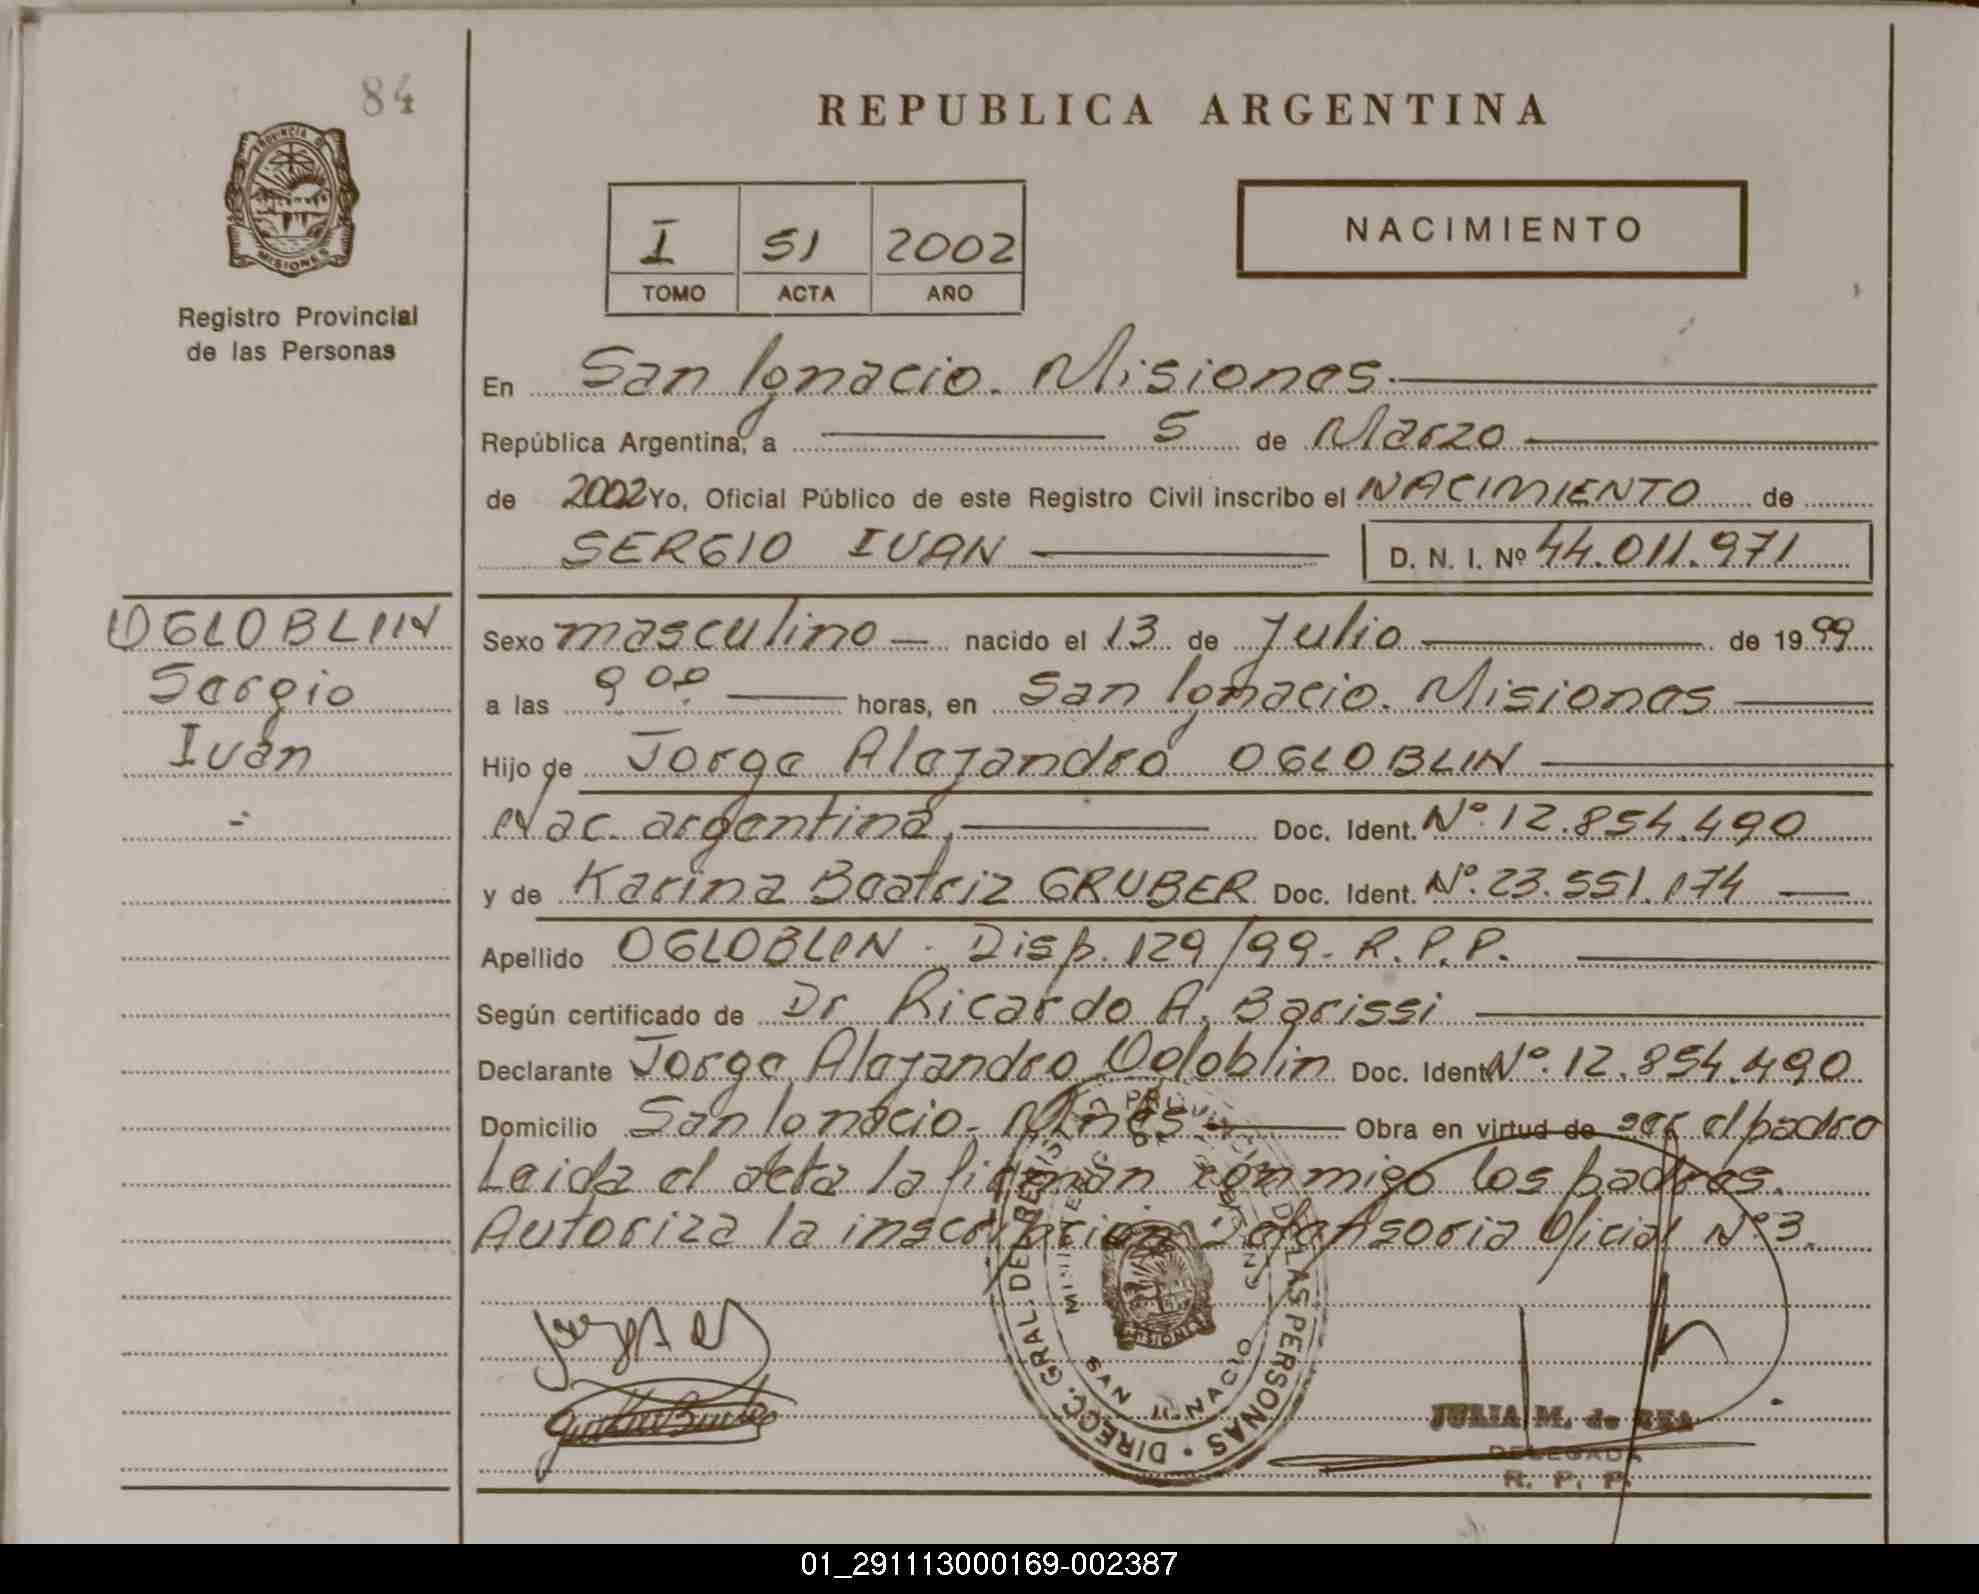 84
PROVINCIA
MISIONES
Registro Provincial
de las Personas
REPUBLICA ARGENTINA
I 51 2002
TOMO ACTA AÑO
NACIMIENTO
En San Ignacio. Misiones.
República Argentina, a 5 de Marzo
de 2002 Yo, Oficial Público de este Registro Civil inscribo el NACIMIENTO de
SERGIO IVAN D. N. I. Nº 44.011.971
OGLOBLIN
Sergio
Iván
Sexo masculino nacido el 13 de Julio de 1999
a las 9 00 horas, en San Ignacio. Misiones
Hijo de Jorge Alejandro OGLOBLIN
Nac. argentina, Doc. Ident. Nº 12.854.490
y de Karina Beatriz GRUBER Doc. Ident. Nº. 23.551.174
Apellido OGLOBLIN. Disp. 129/99. R.P.P.
Según certificado de Dr Ricardo A. Barissi
Declarante Jorge Alejandro Ogloblin Doc. Ident Nº. 12.854.490
Domicilio San Ignacio. Mnes Obra en virtud de ser el padre
Leida el acta la firman conmigo los padres.
Autoriza la inscripcion Defensoria Oficial Nº 3.
DIRECC. GRAL. DE REGIST DE LAS PERSONAS
SAN IGNACIO
MISIONES
JULIA M. de
DELEGADA
R. P. P.
01_291113000169-002387